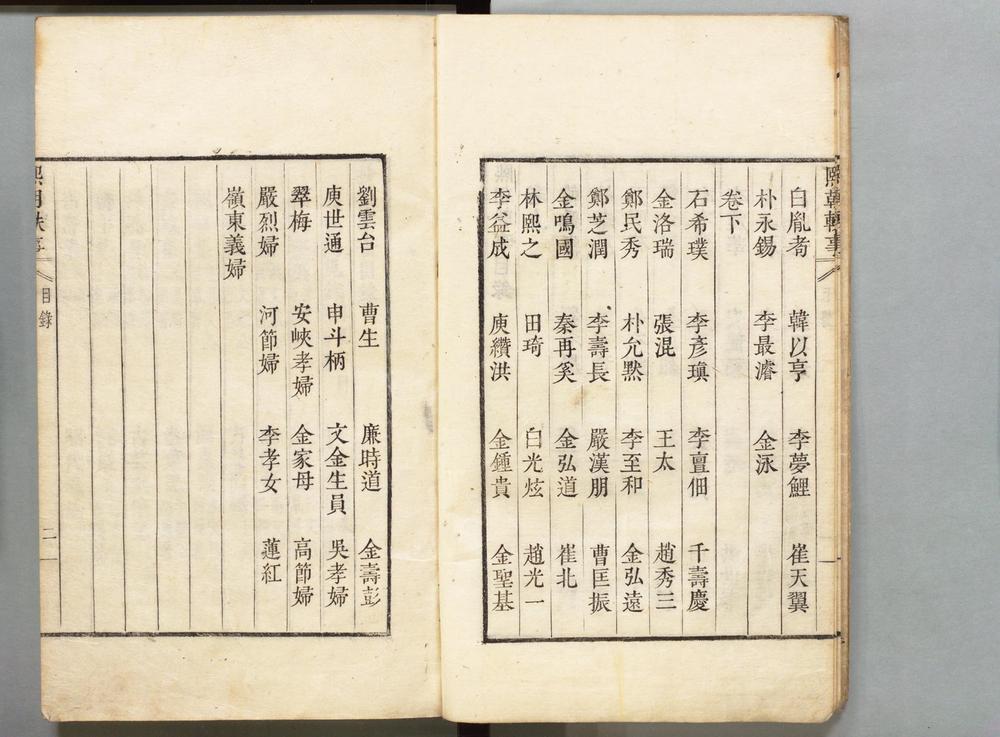 白胤耈 韓以亨 李夢鯉 崔天翼
朴永錫 李最濬 金泳
卷下
石希璞 李彦瑱 李亶佃 千壽慶
金洛瑞 張混 王太 趙秀三
鄭民秀 朴允默 李至和 金弘遠
鄭芝潤 李壽長 嚴漢朋 曹匡振
金鳴國 秦再奚 金弘道 崔北
林熙之 田琦 白光炫 趙光一
李益成 庾纘洪 金鍾貴 金聖基
劉雲台 曹生 廉時道 金壽彭
庾世通 申斗柄 文金生員 吳孝婦
翠梅 安峽孝婦 金家母 高節婦
嚴烈婦 河節婦 李孝女 蓮紅
嶺東義婦
目錄
二